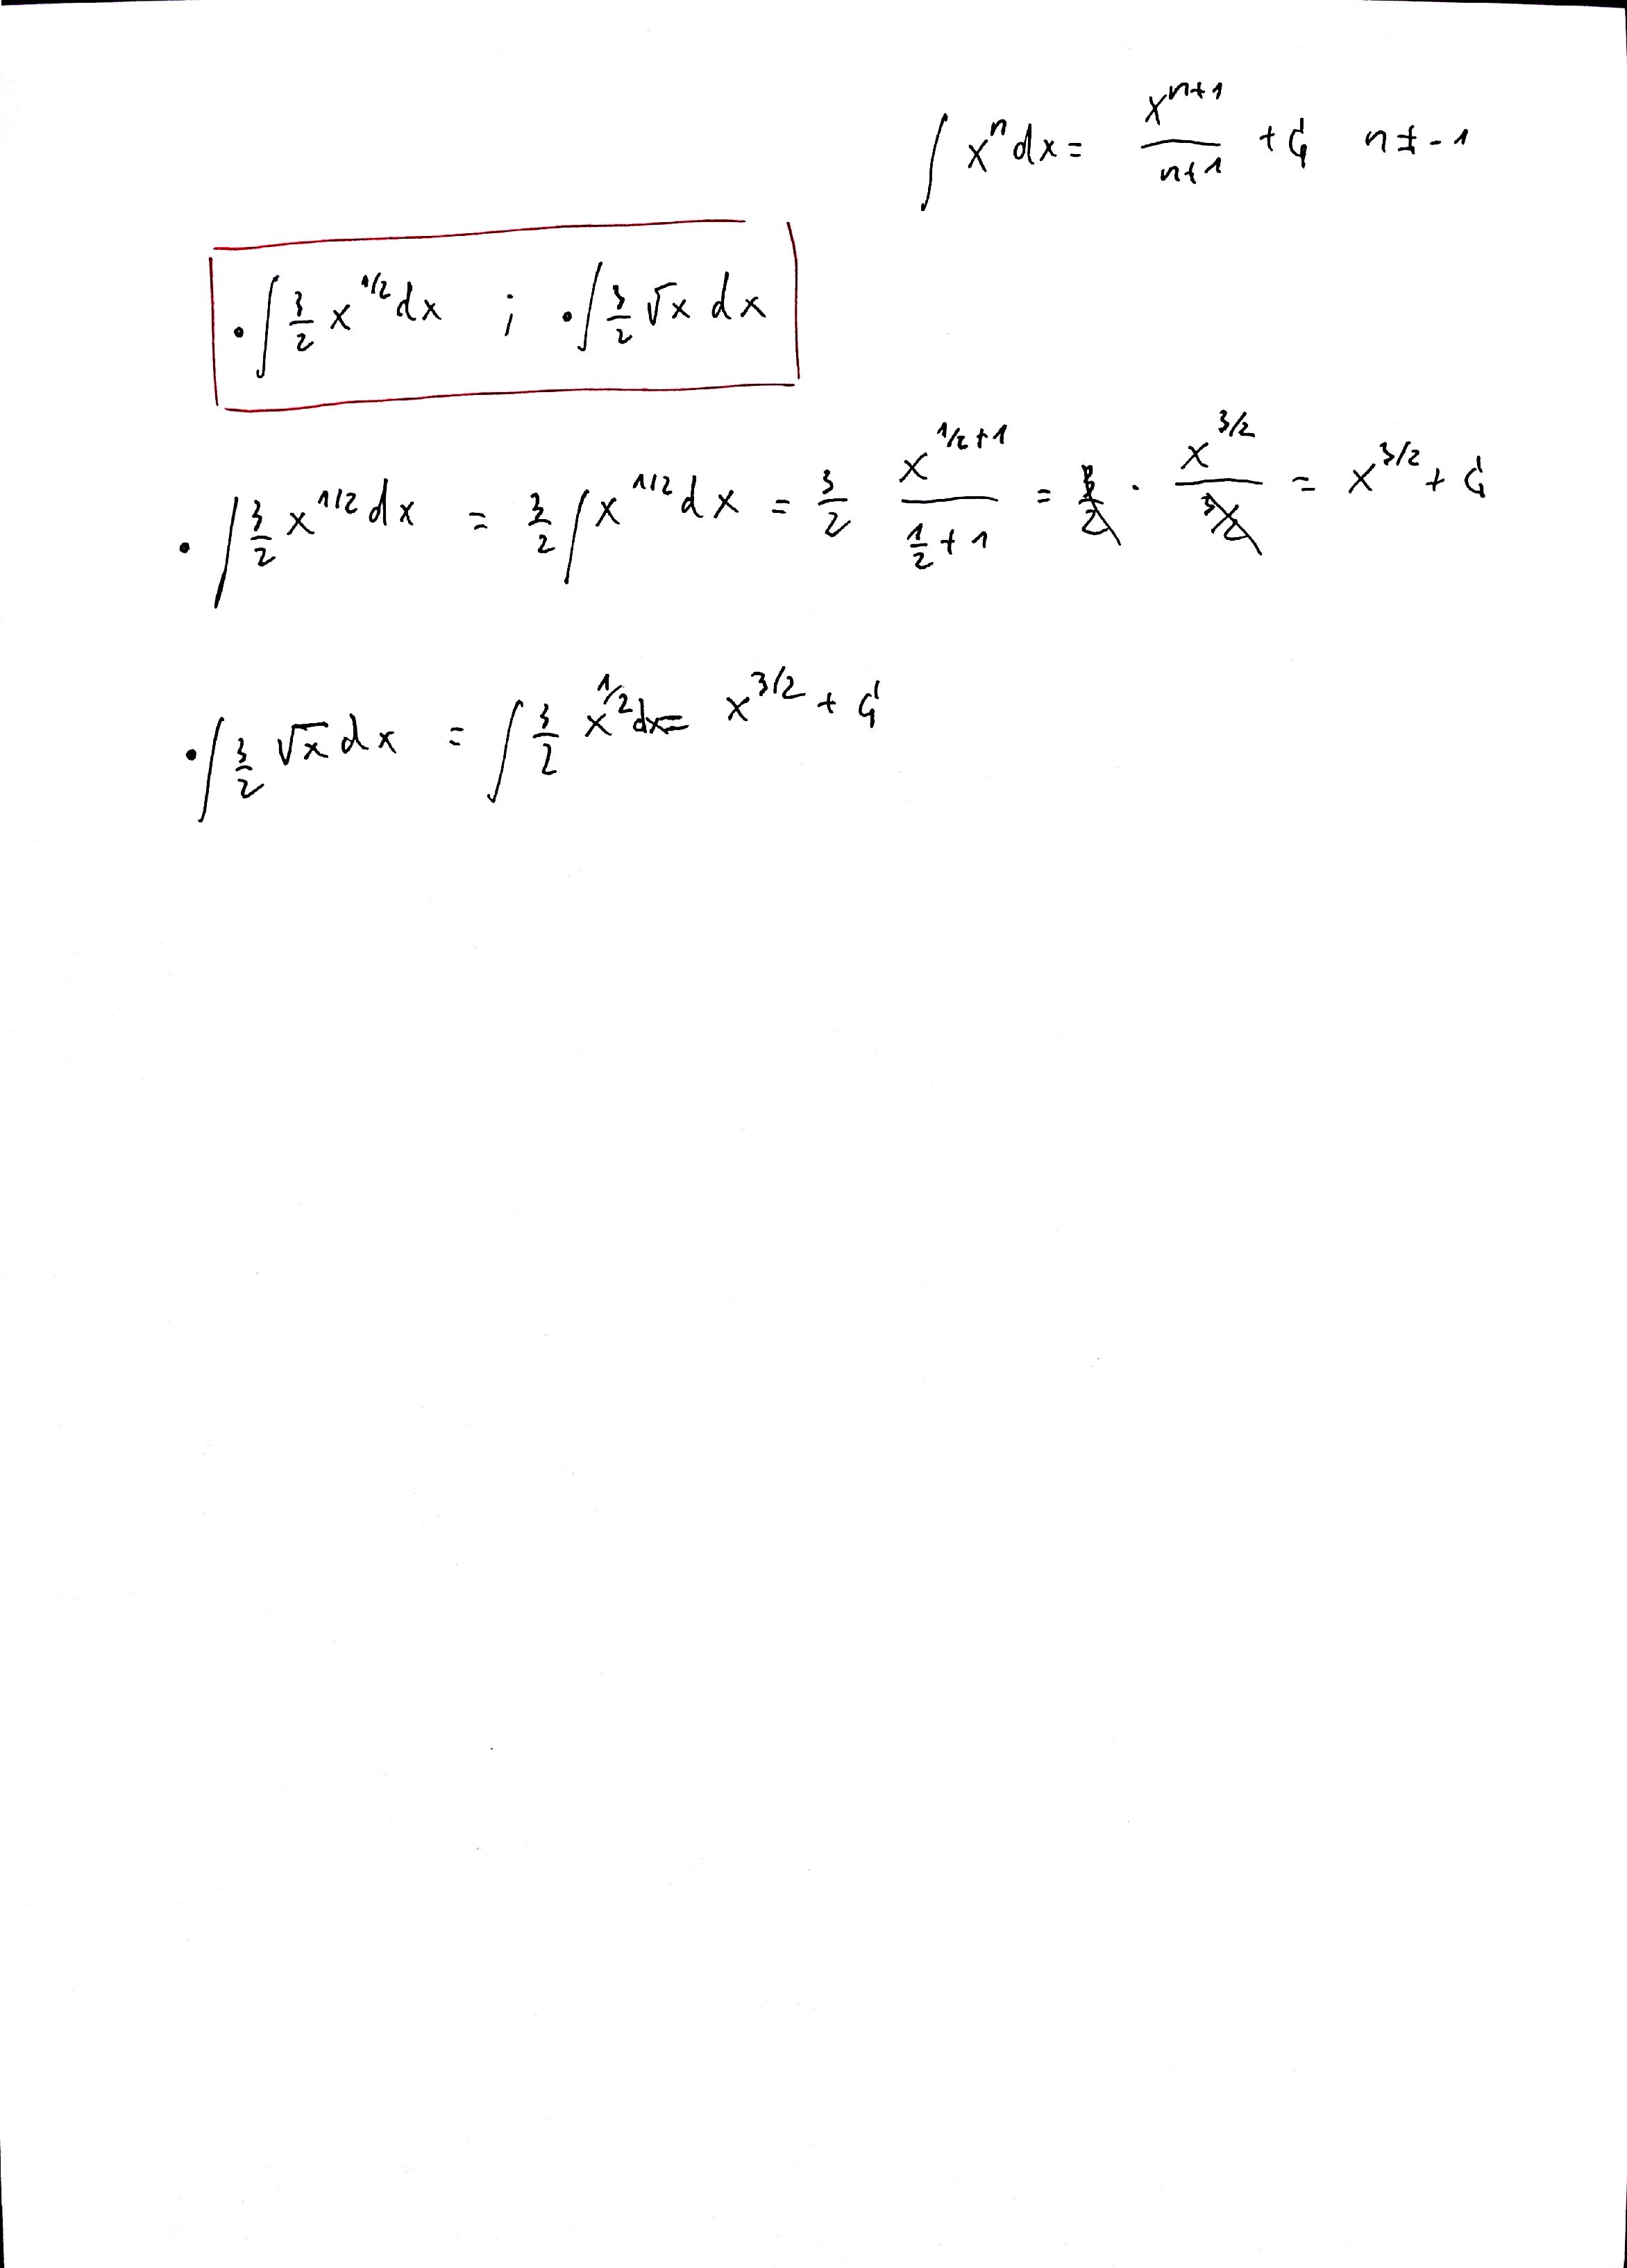 ∫ xⁿ dx = x^(n+1)/(n+1) + C n ≠ -1
• ∫ 3/2 x^(1/2) dx ; • ∫ 3/2 √x dx
• ∫ 3/2 x^(1/2) dx = 3/2 ∫ x^(1/2) dx = 3/2 x^(1/2+1)/(1/2+1) = 3/2 · x^(3/2)/(3/2) = x^(3/2) + C
• ∫ 3/2 √x dx = ∫ 3/2 x^(1/2) dx = x^(3/2) + C